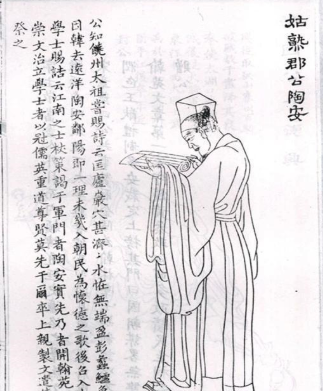 姑孰郡公陶安
公知饒州太祖嘗賜詩云匡廬巖穴甚濟〻水怪無端盈彭蠡鱷魚
因韓去遠洋陶安鄱陽即一理未幾入朝民為懷德之歌後召入
學士賜誥云江南之士杖策謁于軍門者陶安實先乃者開翰苑
崇文治立學士者以冠儒英重道尊賢莫先于爾卒上親製文遣
祭之